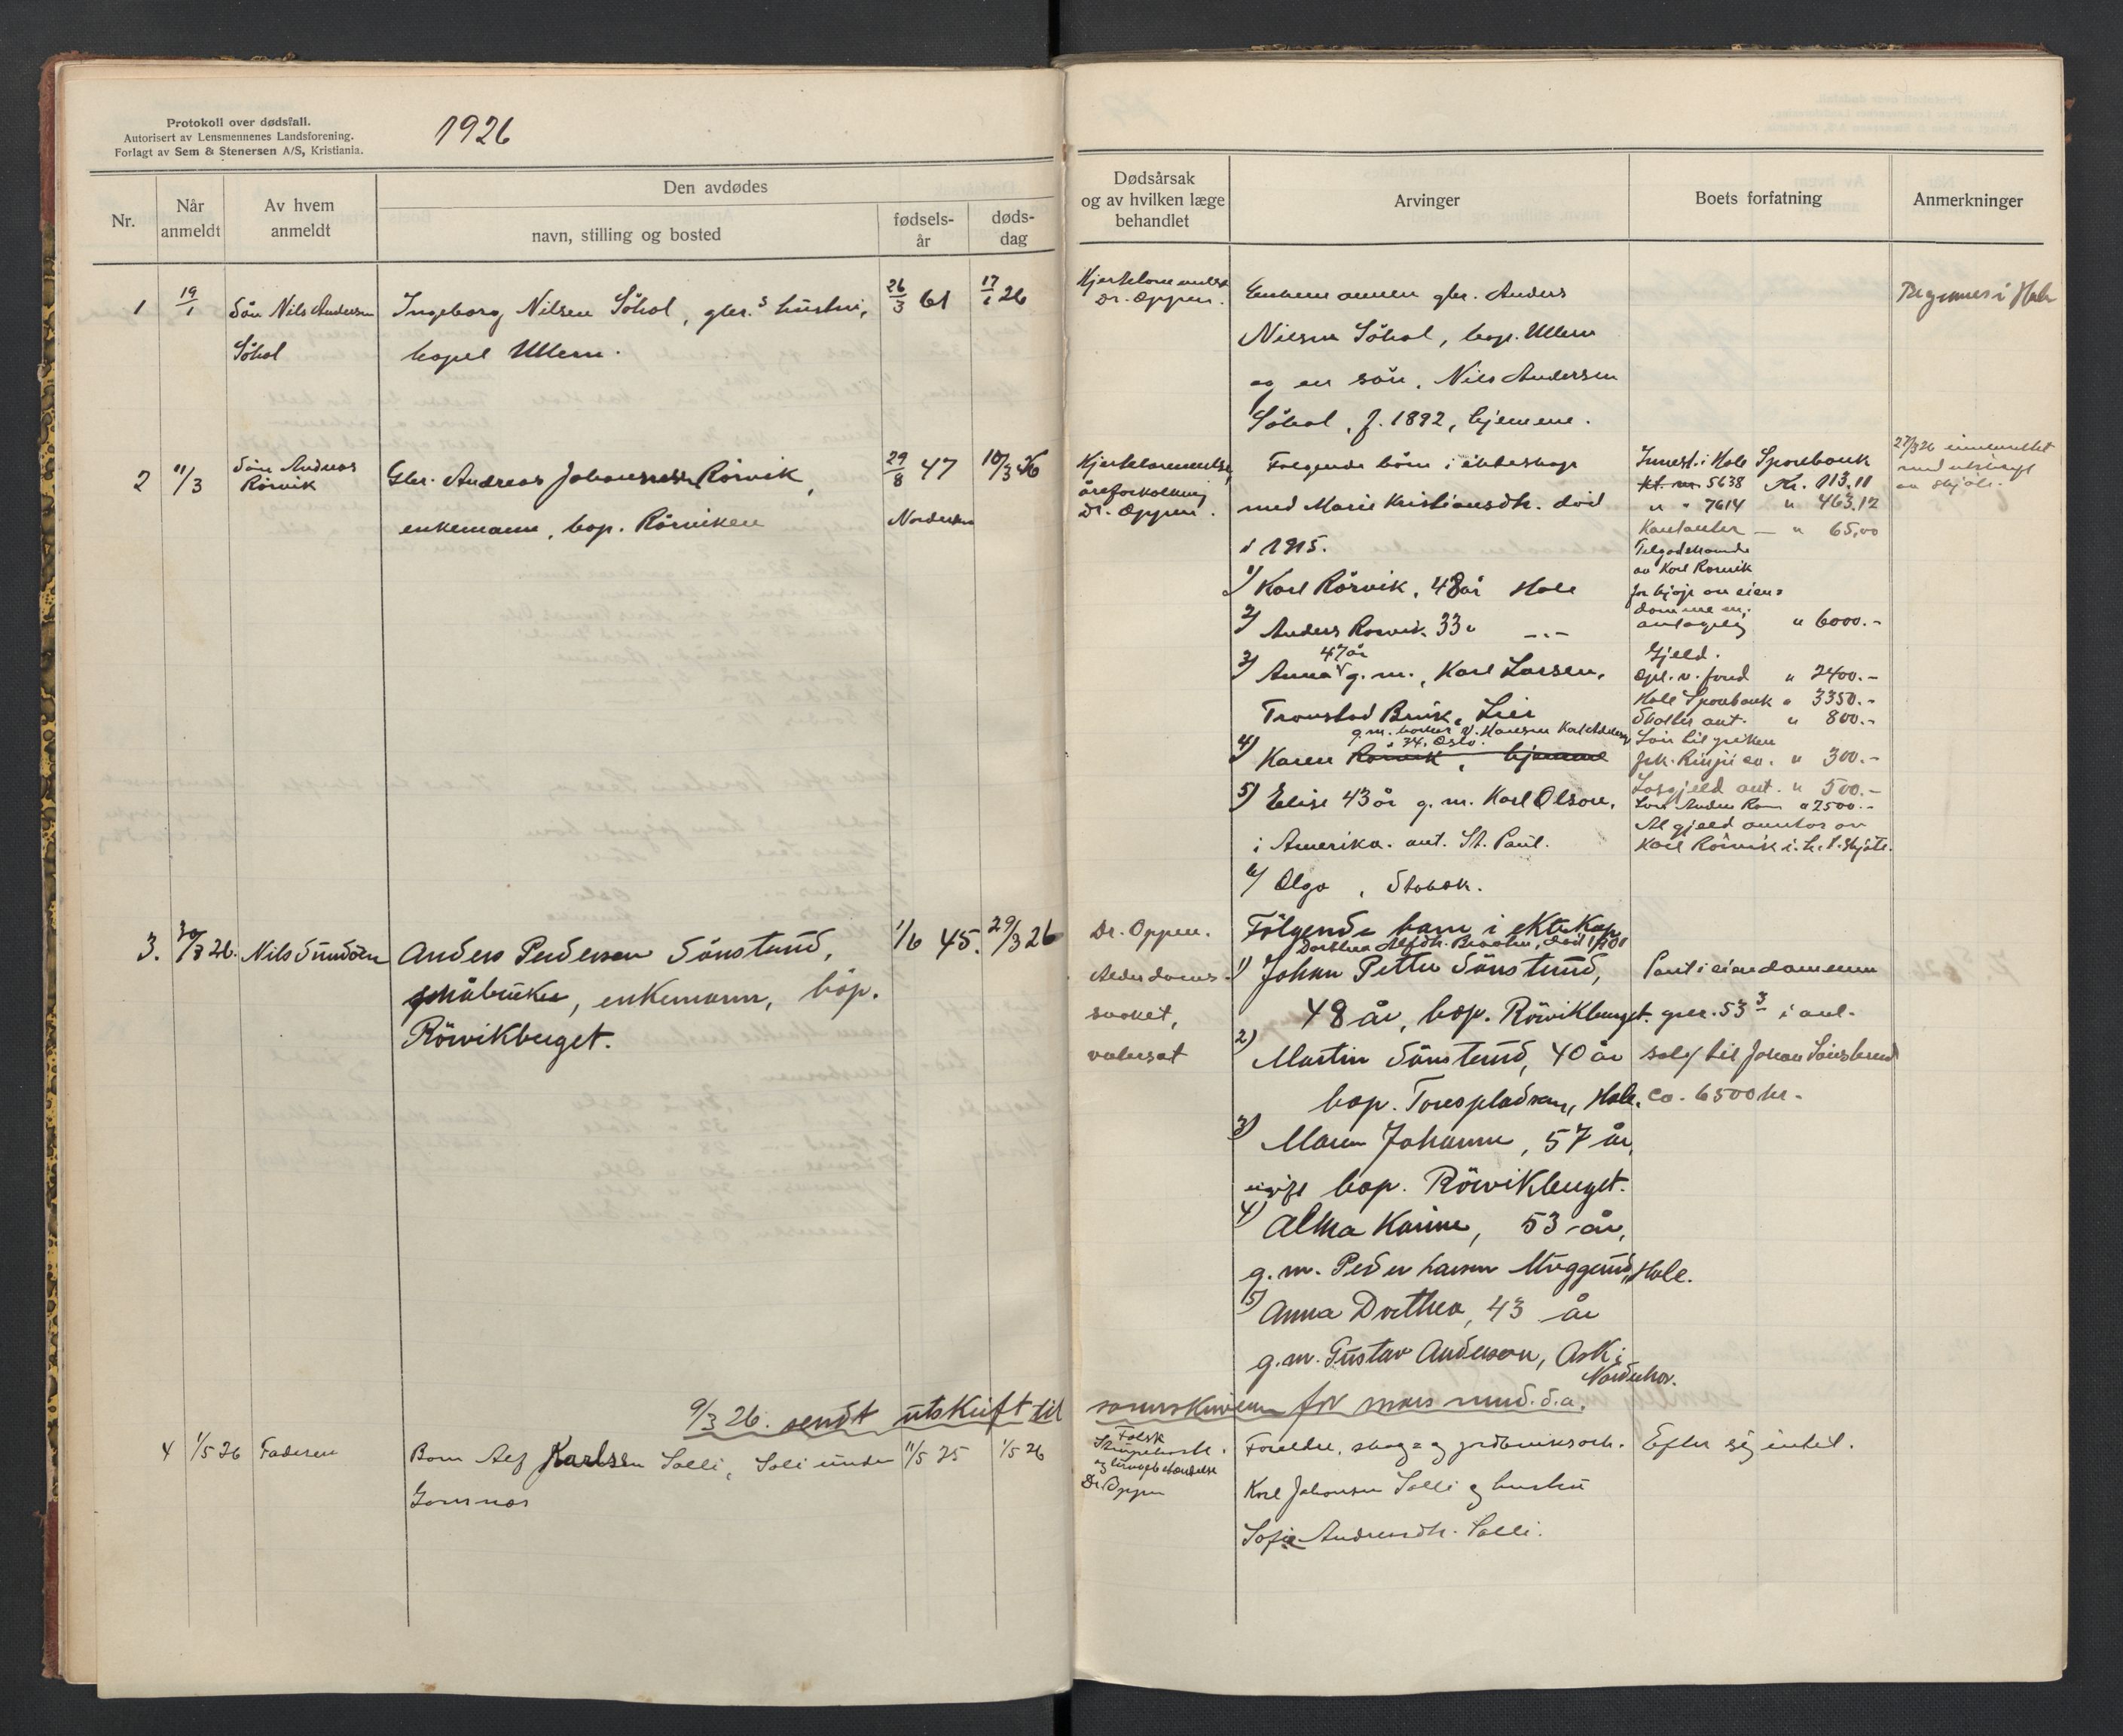 Protokoll over dødsfall.
Autorisert av Lensmennenes Landsforening.
Forlagt av Sem & Stenersen A/S, Kristiania.
1926
Nr.
Når anmeldt
Av hvem anmeldt
Den avdødes
navn, stilling og bosted
fødsels-år
døds-dag
Dødsårsak og av hvilken læge behandlet
Arvinger
Boets forfatning
Anmerkninger
1
19/1
Sön Nils Andersen
Söhol
Ingeborg Nilsen Söhol, gbr.s hustru,
bopel Ullern.
26/3 61
17/1 26
Hjertelammelse
Dr. Oppen.
Enkemannen gbr. Anders
Nilsen Söhol, bop. Ullern
og en sön, Nils Andersen
Söhol, f. 1892, hjemme.
2
11/3
Sön Andreas
Rörvik
Gbr. Andreas Johannessen Rörvik,
enkemann, bop. Rörviken
29/8 47
Norderhov
10/3 26
Hjertelammelse,
åreforkalkning
Dr. Oppen.
Følgende börn i ekteskap
med Marie Kristiansdtr. död
i 1915.
1) Karl Rörvik, 48 år Hole
2) Anders Rörvik 33 " -"-
47 år
3) Anna g.m. Karl Larsen,
Tronstad Bruk, Lier
4) Karen Rörvik, hjemme
5) Elise 43 år g.m. Karl Olson,
i Amerika. ant. St. Paul.
6) Olga, Stabæk.
Innest. i Hole Sparebank
kt. nr. 5638 Kr. 113.11
" " 7614 " 463.12
Kontanter — " 65,00
Tilgodehavende
av Karl Rörvik
for kjøp av eien=
dommen,
antagelig " 6000.-
Gjeld.
Opl. v. fond " 2400.-
Hole Sparebank " 3350.-
Skatter ant. " 800.-
Lön til piken
" 300.-
Løsgjeld ant. " 500.-
" 2500.-
Al gjeld overtas av
Karl Rörvik i h. t. skjøte.
27/3 26 innsendt
med utskrift
av skjøte.
3.
30/3 26.
Nils Sundöen
Anders Pedersen Sönsterud,
småbruker, enkemann, bop.
Rörvikberget.
1/6 45.
29/3 26
Dr. Oppen.
Alderdoms-
svaket,
vatersot
Följende barn i ektskap
1) Johan Petter Sönsterud,
48 år, bop. Rörvikberget.
2)
Martin Sönsterud, 40 år
bop. Toresplassen, Hole.
3) Maren Johanne, 57 år,
ugift bop. Rörvikberget.
4) Alma Karine, 53 år,
g.m. Peder Larsen Muggerud, Hole.
5) Anna Dorthea, 43 år
g.m. Gustav Anderson, Ask i
Norderhov.
Pant i eiendommen
gnr. 53 3 i anl.
salg til Johan Sönsterud
ca. 6500 kr.
9/3 26. sendt utskrift til sorenskriveren for mars mnd. d.a.
4
1/5 26
Faderen
Barn Alf Karlsen Solli, Soli under
Gomnæs
11/5 25
1/5 26
Falsk
Strupehoste
Dr. Oppen
Foreldre, skog= og jordbruksarb.
Karl Johansen Solli og hustru
Sofie Andreasdtr. Solli.
Efter sig intet.